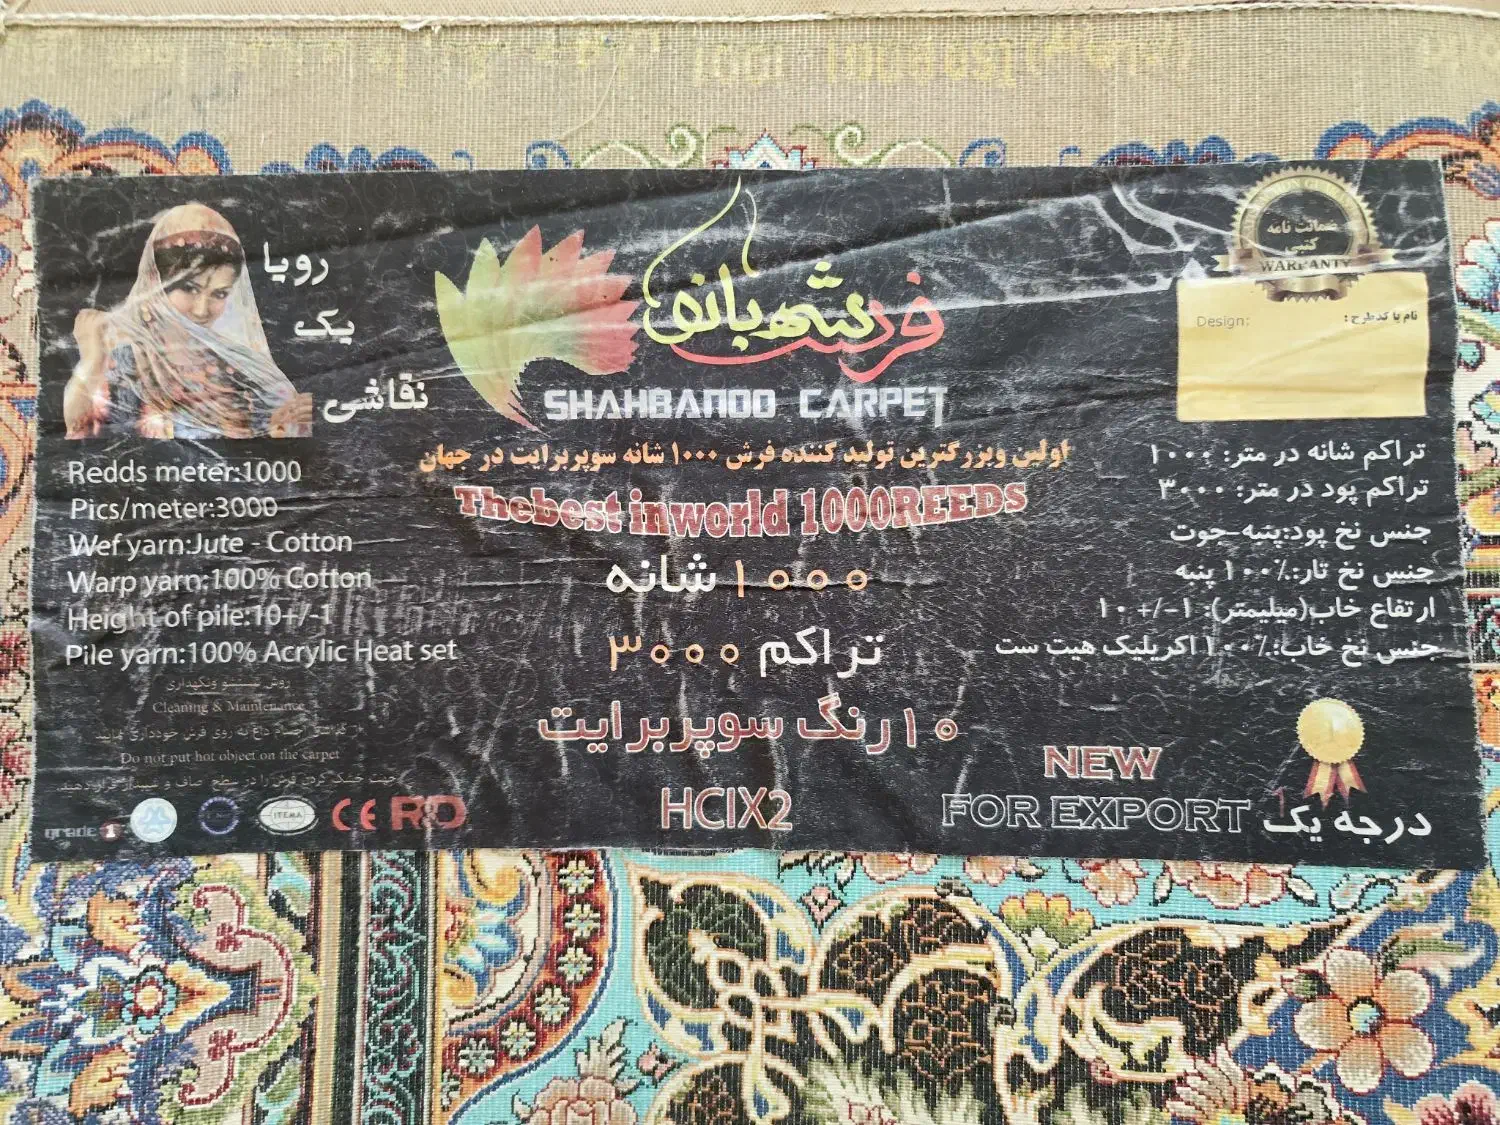 رویا
یک
نقاشی
فرش شهربانو
SHAHBANOO CARPET
ضمانت نامه
کتبی
WARRANTY
Design:
نام یا کد طرح :
اولین وبزرگترین تولید کننده فرش ۱۰۰۰ شانه سوپربرایت در جهان
Thebest inworld 1000REEDS
۱۰۰۰ شانه
تراکم ۳۰۰۰
۱۰ رنگ سوپربرایت
HCIX2
Redds meter:1000
Pics/meter:3000
Wef yarn:Jute - Cotton
Warp yarn:100% Cotton
Height of pile:10+/-1
Pile yarn:100% Acrylic Heat set
روش شستشو ونگهداری
Cleaning & Maintenance
داغ به روی فرش خودداری نمایید
Do not put hot object on the carpet
جهت خشک کردن فرش را در سطح صاف و
grade 1
ITEMA
CE R&D
تراکم شانه در متر: ۱۰۰۰
تراکم پود در متر: ۳۰۰۰
جنس نخ پود:پنبه-جوت
جنس نخ تار:٪۱۰۰ پنبه
ارتفاع خاب(میلیمتر): ۱-/+۱۰
جنس نخ خاب:٪۱۰۰ اکریلیک هیت ست
NEW
FOR EXPORT
1
درجه یک